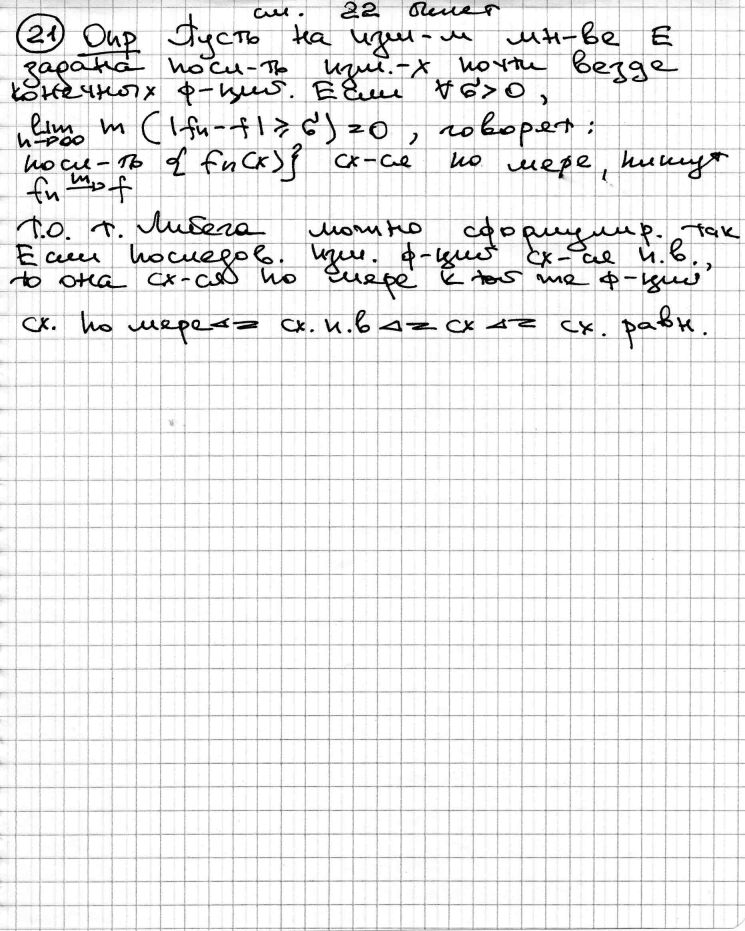 см. 22 билет
(21) Опр Пусть на изм-м мн-ве E
задана посл-ть изм.-х почти везде
конечных ф-ций. Если ∀ σ > 0,
lim n→∞ m (|fn - f| ≥ σ) = 0, говорят:
посл-ть {fn(x)} сх-ся по мере, пишут
fn m→ f
Т.О. т. Лебега можно сформулир. так
Если последов. изм. ф-ций сх-ся п.в.,
то она сх-ся по мере к той же ф-ции
сх. по мере <= сх. п.в <= сх <= сх. равн.